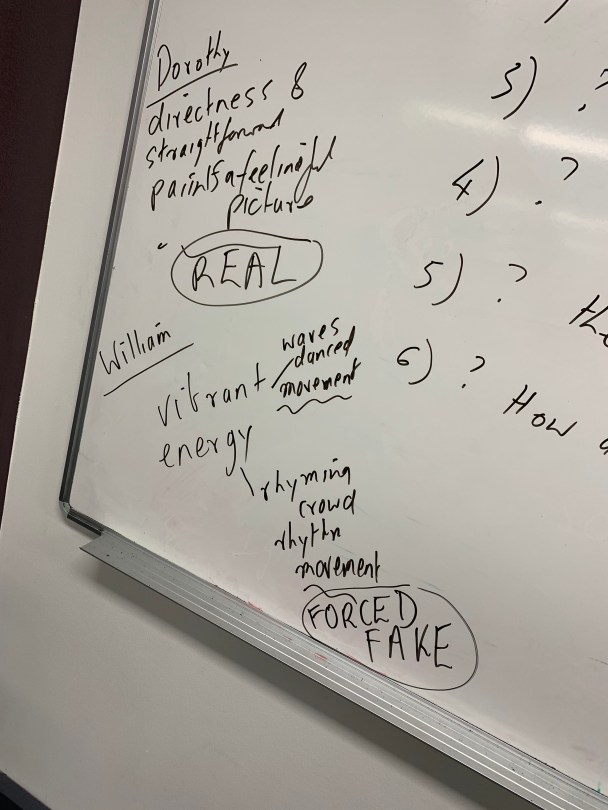 Dorothy
directness &
straightforward
paints a feelingful
picture
REAL
William
vibrant
energy
waves
danced
movement
rhyming
crowd
rhythm
movement
FORCED
FAKE
3) ?
4) ?
5) ?
6) ? How